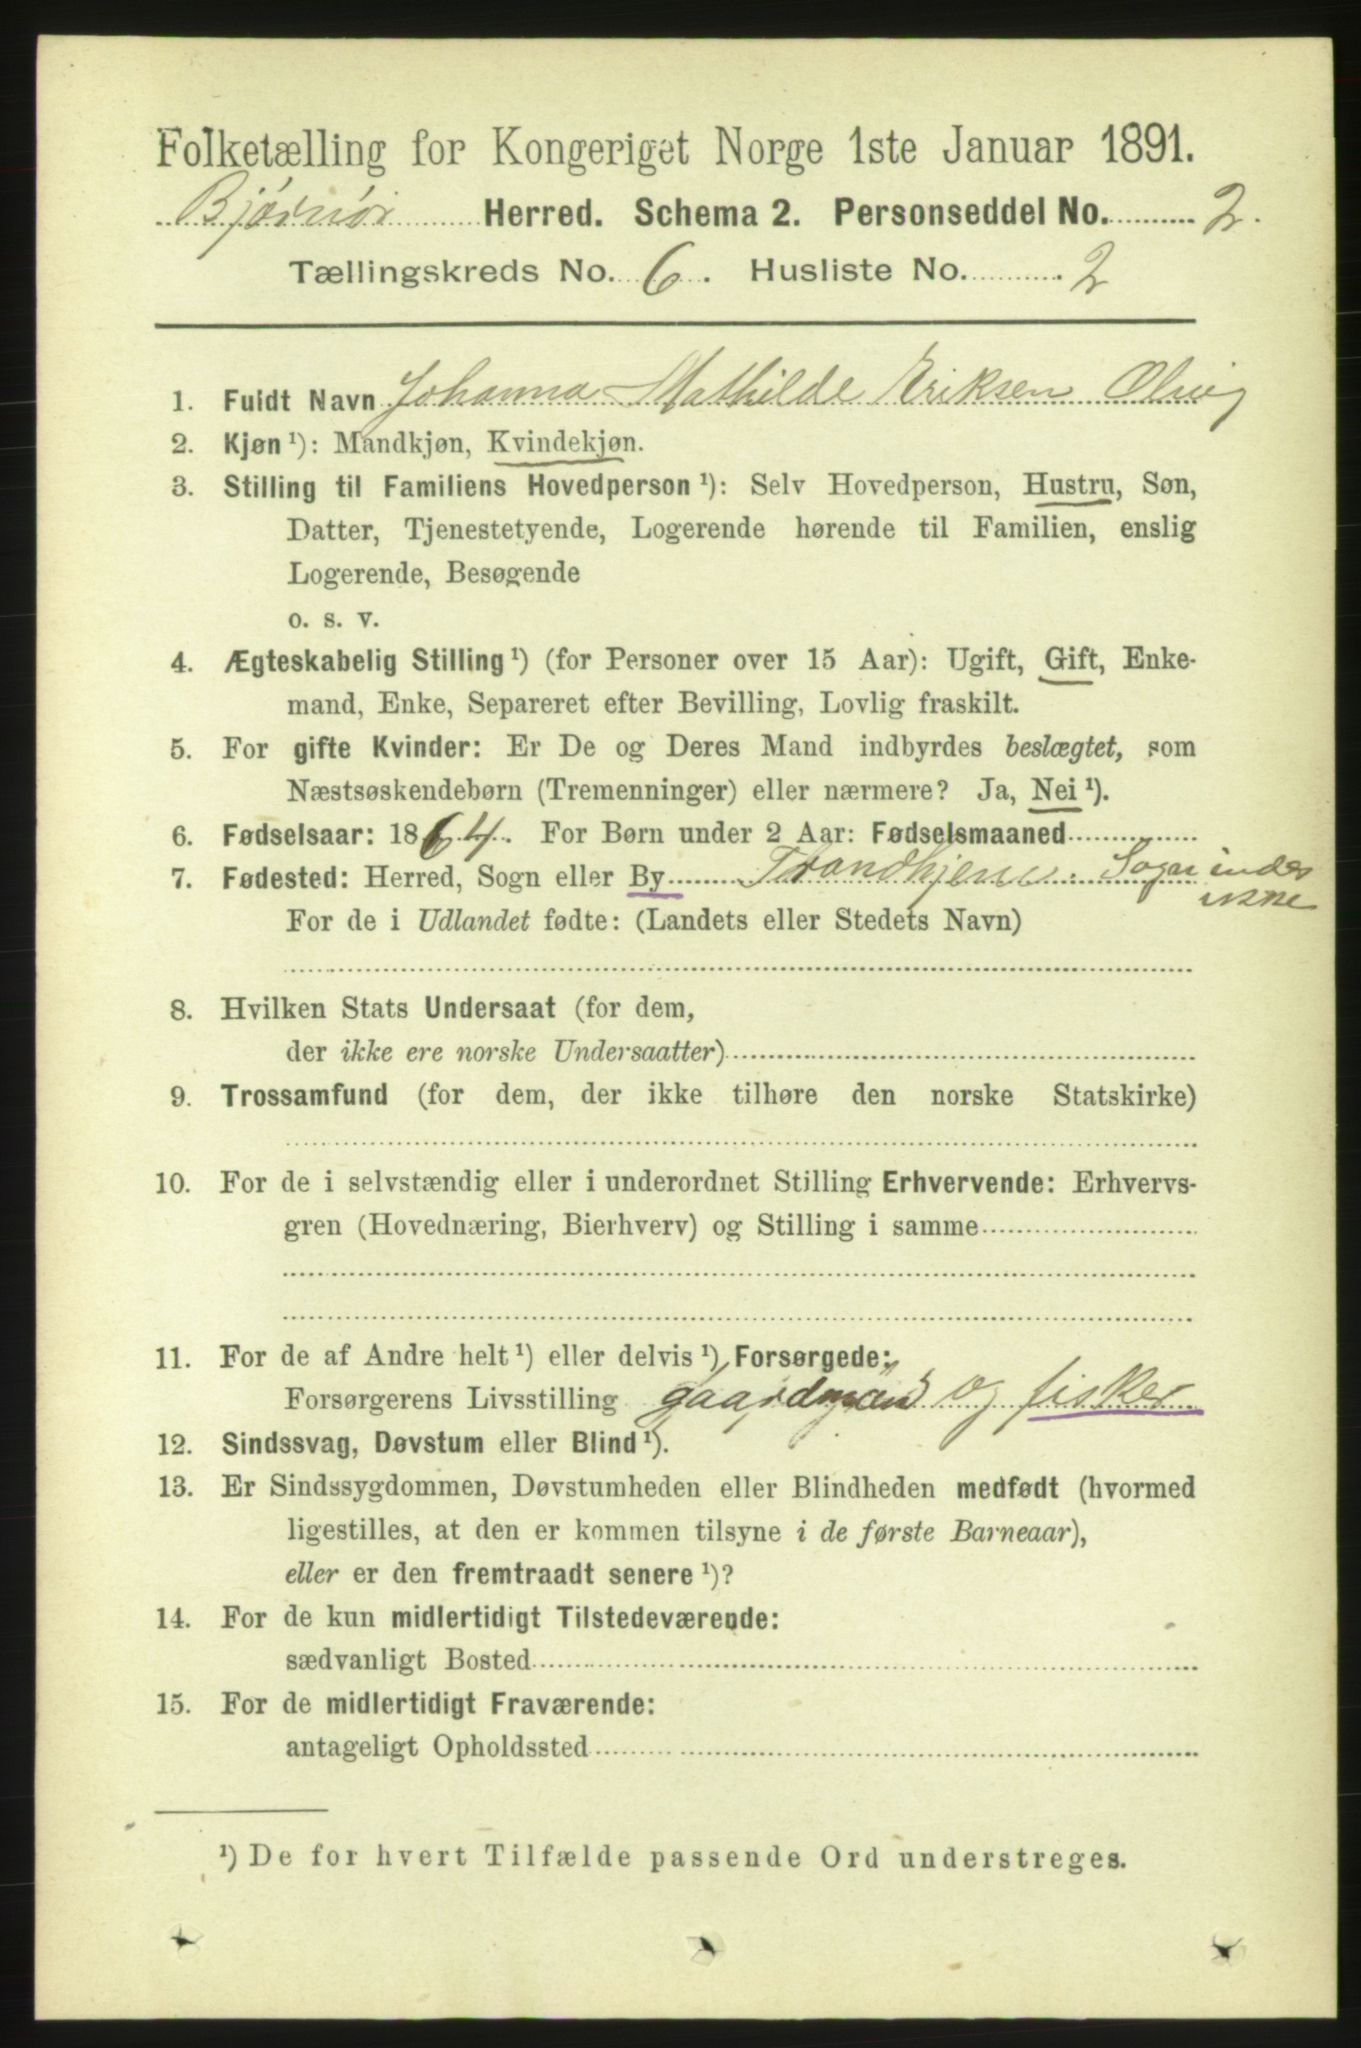 Folketælling for Kongeriget Norge 1ste Januar 1891.
Bjørnør Herred. Schema 2. Personseddel No. 2.
Tællingskreds No. 6. Husliste No. 2
1. Fuldt Navn Johanna Mathilde Eriksen
2. Kjøn ¹): Mandkjøn, Kvindekjøn.
3. Stilling til Familiens Hovedperson ¹): Selv Hovedperson, Hustru, Søn,
Datter, Tjenestetyende, Logerende hørende til Familien, enslig
Logerende, Besøgende
o. s. v.
4. Ægteskabelig Stilling ¹) (for Personer over 15 Aar): Ugift, Gift, Enke-
mand, Enke, Separeret efter Bevilling, Lovlig fraskilt.
5. For gifte Kvinder: Er De og Deres Mand indbyrdes beslægtet, som
Næstsøskendebørn (Tremenninger) eller nærmere? Ja, Nei ¹).
6. Fødselsaar: 1864. For Børn under 2 Aar: Fødselsmaaned
7. Fødested: Herred, Sogn eller By Trondhjem. Sogn
For de i Udlandet fødte: (Landets eller Stedets Navn)
8. Hvilken Stats Undersaat (for dem,
der ikke ere norske Undersaatter)
9. Trossamfund (for dem, der ikke tilhøre den norske Statskirke)
10. For de i selvstændig eller i underordnet Stilling Erhvervende: Erhvervs-
gren (Hovednæring, Bierhverv) og Stilling i samme
11. For de af Andre helt ¹) eller delvis ¹) Forsørgede:
Forsørgerens Livsstilling gaardmand og fisker
12. Sindssvag, Døvstum eller Blind ¹).
13. Er Sindssygdommen, Døvstumheden eller Blindheden medfødt (hvormed
ligestilles, at den er kommen tilsyne i de første Barneaar),
eller er den fremtraadt senere ¹)?
14. For de kun midlertidigt Tilstedeværende:
sædvanligt Bosted
15. For de midlertidigt Fraværende:
antageligt Opholdssted
¹) De for hvert Tilfælde passende Ord understreges.